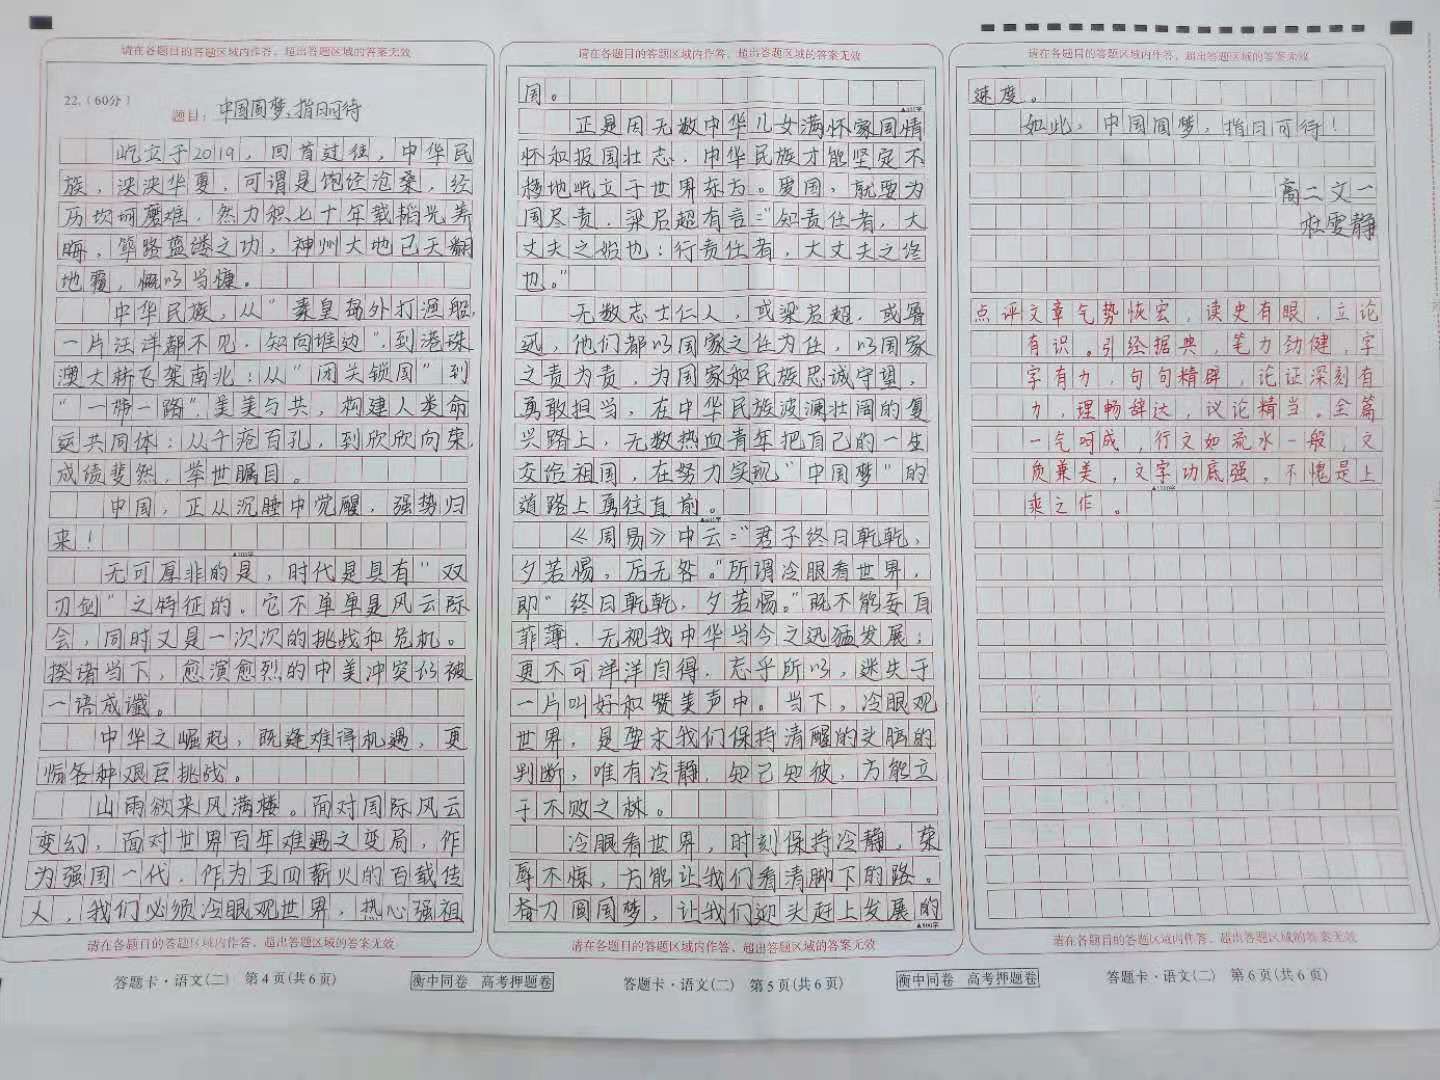 请在各题目的答题区域内作答，超出答题区域的答案无效
22.（60分）
题目：中国圆梦、指日可待
屹立于2019，回首过往，中华民
族，泱泱华夏，可谓是饱经沧桑，经
历坎坷磨难，然力积七十年载韬光养
晦，筚路蓝缕之功，神州大地已天翻
地覆，慨以当慷。
中华民族，从“秦皇岛外打渔船，
一片汪洋都不见，知向谁边”，到港珠
澳大桥飞架南北；从“闭关锁国”到
“一带一路”，美美与共，构建人类命
运共同体；从千疮百孔，到欣欣向荣，
成绩斐然，举世瞩目。
中国，正从沉睡中觉醒，强势归
来！
无可厚非的是，时代是具有“双
刃剑”之特征的。它不单单是风云际
会，同时又是一次次的挑战和危机。
揆诸当下，愈演愈烈的中美冲突仍被
一语成谶。
中华之崛起，既逢难得机遇，更
临各种艰巨挑战。
山雨欲来风满楼。面对国际风云
变幻，面对世界百年难遇之变局，作
为强国一代，作为五四薪火的百载传
人，我们必须冷眼观世界，热心强祖
请在各题目的答题区域内作答，超出答题区域的答案无效
答题卡·语文(二) 第4页(共6页)
请在各题目的答题区域内作答，超出答题区域的答案无效
国。
正是因无数中华儿女满怀家国情
怀和报国壮志，中华民族才能坚定不
移地屹立于世界东方。爱国，就要为
国尽责，梁启超有言：“知责任者，大
丈夫之始也；行责任者，大丈夫之终
也。”
无数志士仁人，或梁启超，或
，他们都以国家之任为任，以国家
之责为责，为国家和民族忠诚守望，
勇敢担当，在中华民族波澜壮阔的复
兴路上，无数热血青年把自己的一生
交给祖国，在努力实现“中国梦”的
道路上勇往直前。
《周易》中云：“君子终日乾乾，
夕若惕，厉无咎。”所谓冷眼看世界，
即“终日乾乾，夕若惕。”既不能妄自
菲薄，无视我中华当今之迅猛发展；
更不可洋洋自得，忘乎所以，迷失于
一片叫好和赞美声中。当下，冷眼观
世界，是要求我们保持清醒的头脑的
判断，唯有冷静，知己知彼，方能立
于不败之林。
冷眼看世界，时刻保持冷静，荣
辱不惊，方能让我们看清脚下的路。
奋力圆国梦，让我们迎头赶上发展的
请在各题目的答题区域内作答，超出答题区域的答案无效
衡中同卷 高考押题卷
答题卡·语文(二) 第5页(共6页)
请在各题目的答题区域内作答，超出答题区域的答案无效
速度。
如此，中国圆梦，指日可待！
高二文一
杜雯静
点评文章气势恢宏，读史有眼，立论
有识。引经据典，笔力劲健，字
字有力，句句精辟，论证深刻有
力，理畅辞达，议论精当。全篇
一气呵成，行文如流水一般，文
质兼美，文字功底强，不愧是上
乘之作。
请在各题目的答题区域内作答，超出答题区域的答案无效
衡中同卷 高考押题卷
答题卡·语文(二) 第6页(共6页)